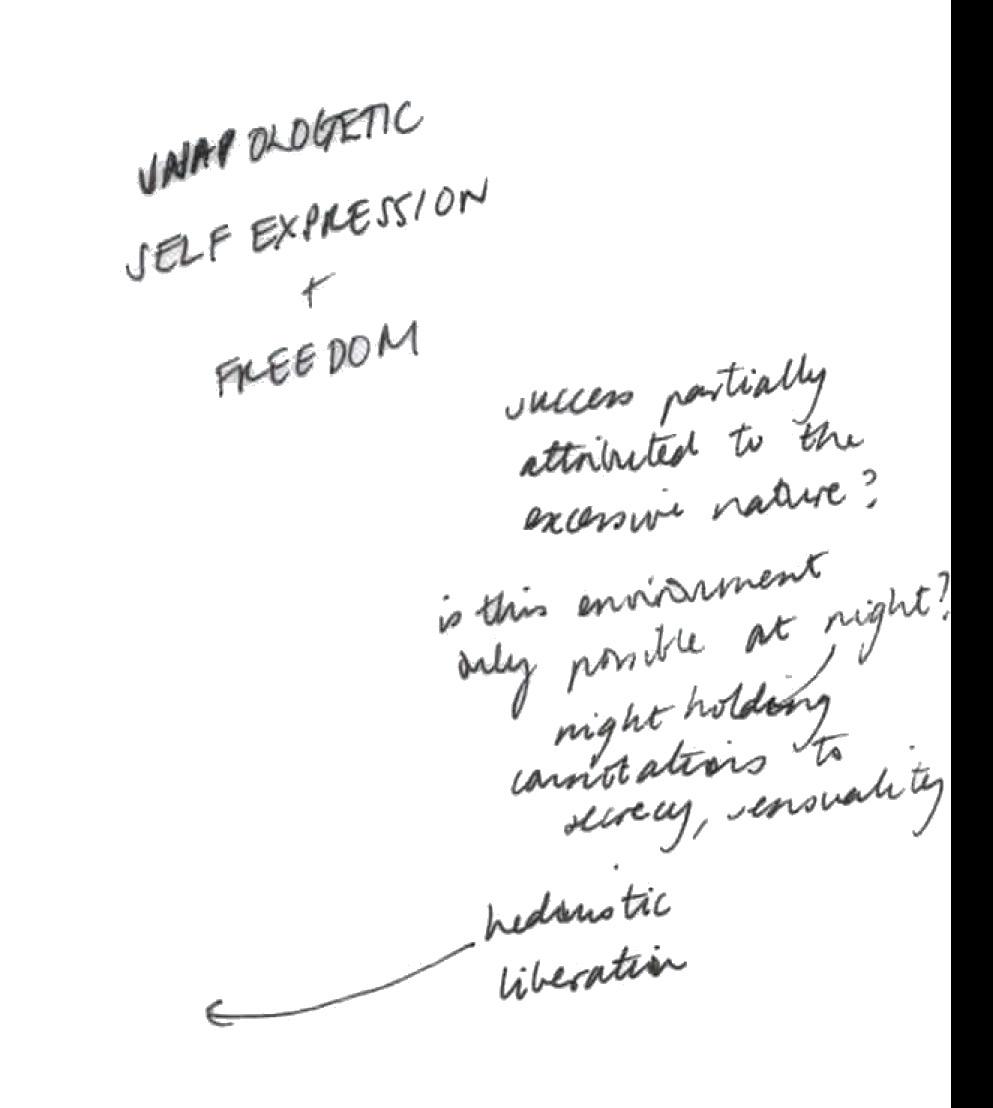 UNAPOLOGETIC
SELF EXPRESSION
+
FREEDOM
success partially
attributed to the
excessive nature?
is this environment
only possible at night?
night holding
connotations to
secrecy, sensuality
hedonistic
liberation